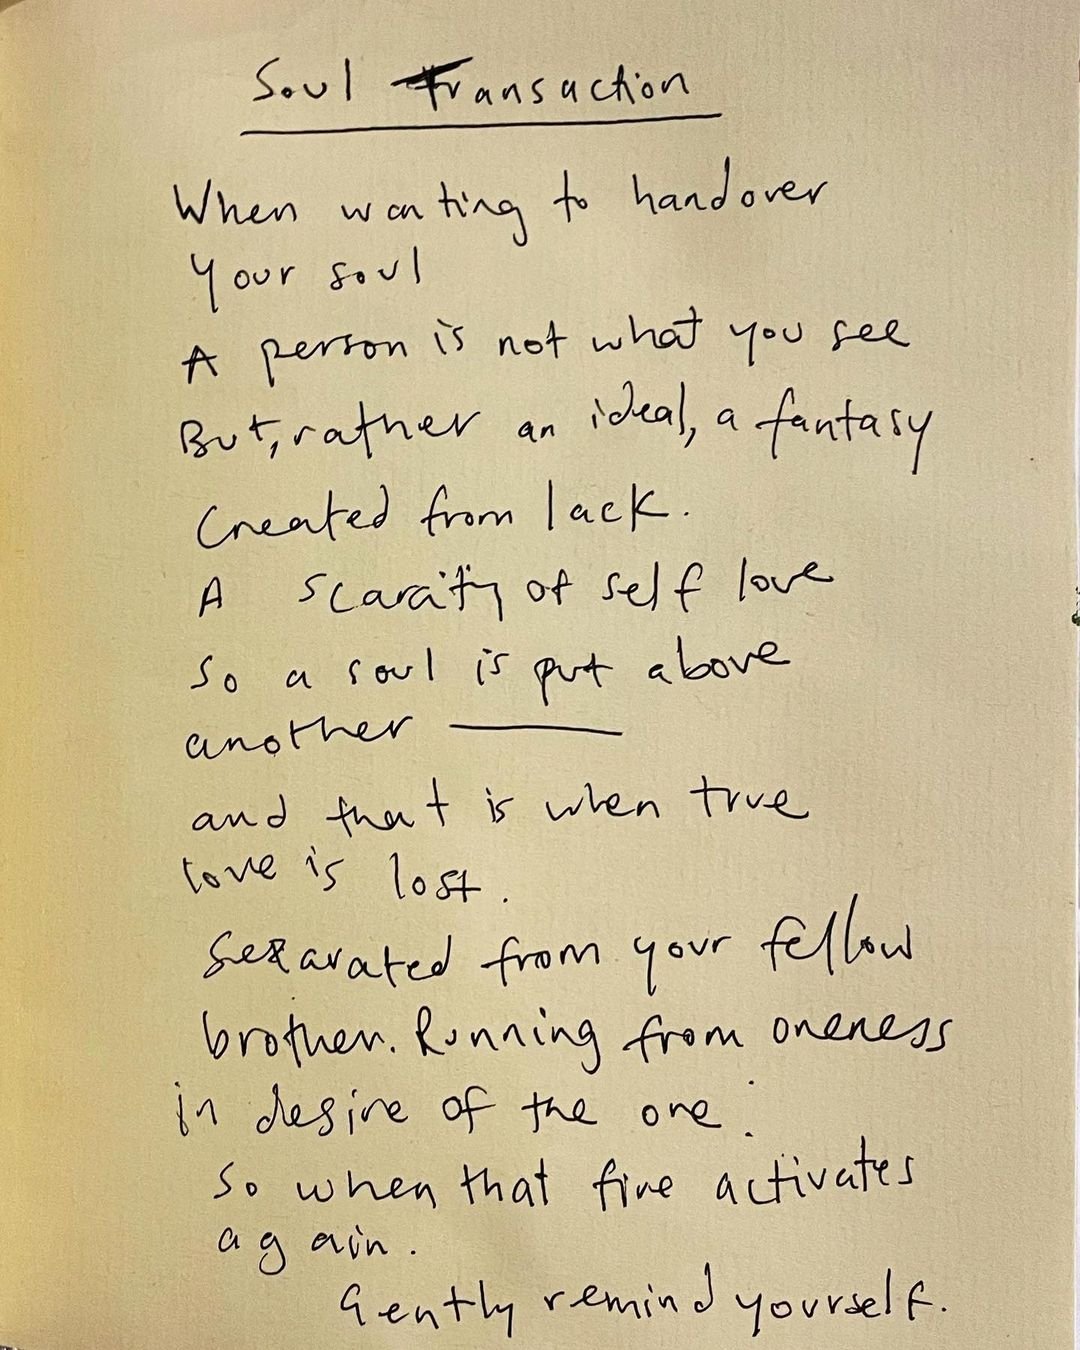 Soul Transaction
When waiting to handover
your soul
A person is not what you see
But, rather an ideal, a fantasy
Created from lack.
A scarcity of self love
So a soul is put above
another —
and that is when true
love is lost.
Separated from your fellow
brother. Running from oneness
in desire of the one.
So when that fire activates
again.
Gently remind yourself.